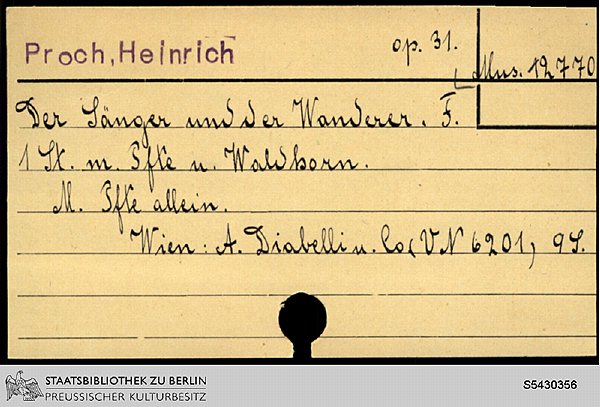 Proch, Heinrich op. 31. Mus. 12770
Der Sänger und der Wanderer. F.
1 St. m. Pfte u. Waldhorn.
M. Pfte allein.
Wien: A. Diabelli u. Co (VN 6201) 9 S.
STAATSBIBLIOTHEK ZU BERLIN
PREUSSISCHER KULTURBESITZ
S5430356